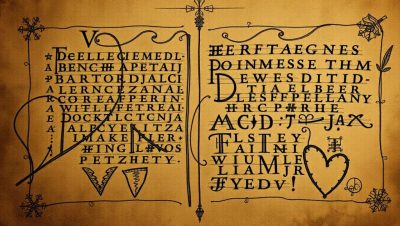 V
DEELLEGIEMEDL
BENCHAPETAIJ
BARTORDJALCI
LERNCEZANAL
COREAFPERIN
WIFFILFETREAL
DOCKTLCTCNJA
ALECYENTZA
IMAKEPLER
HINGLVOS
PETZHETY.
HERFTAEGNES
POINMESSE THM
DEWES DITID-
TIALELBEER
LESFFPELLANY
HRCPHRIE
TLSTEY
FAITNI
WIUMLE
LIAMJR
FYEDV!